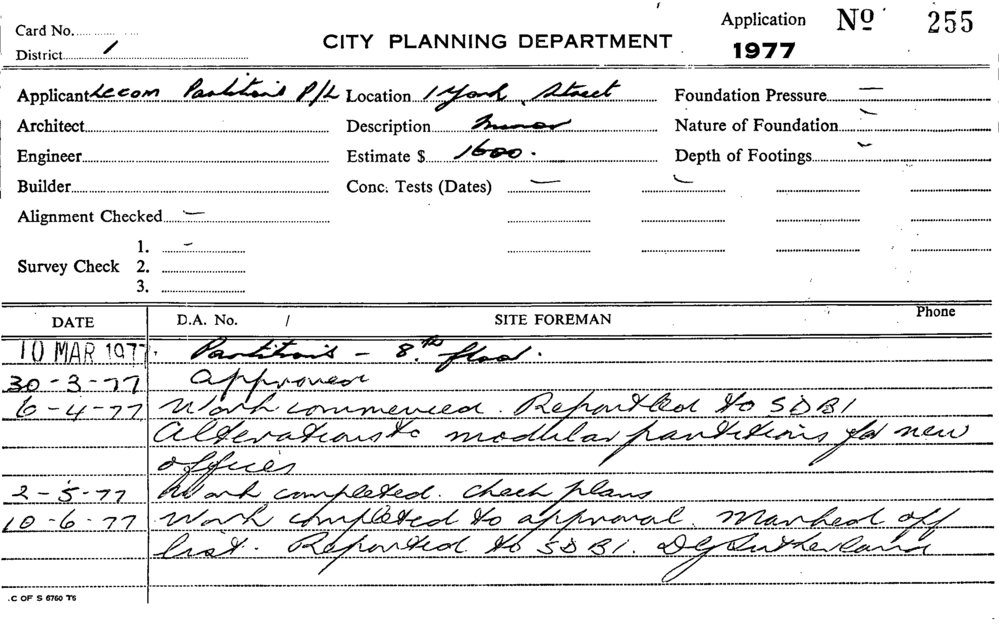 Card No. Application Nº 255
District 1 CITY PLANNING DEPARTMENT 1977
Applicant Partitions P/L Location 1 York Street Foundation Pressure —
Architect Description Minor Nature of Foundation —
Engineer Estimate $ 1600. Depth of Footings —
Builder Conc. Tests (Dates) — —
Alignment Checked —
1. -
Survey Check 2.
3.
DATE D.A. No. / SITE FOREMAN Phone
10 MAR 1977. Partitions - 8th floor.
30-3-77 Approved
6-4-77 Work commenced. Reported to SDBI
Alterations to modular partitions for new
offices
2-5-77 Work completed. Check plans
10-6-77 Work completed to approval. Marked off
list. Reported to SDBI. DG Sutherland
C OF S 6760 T5